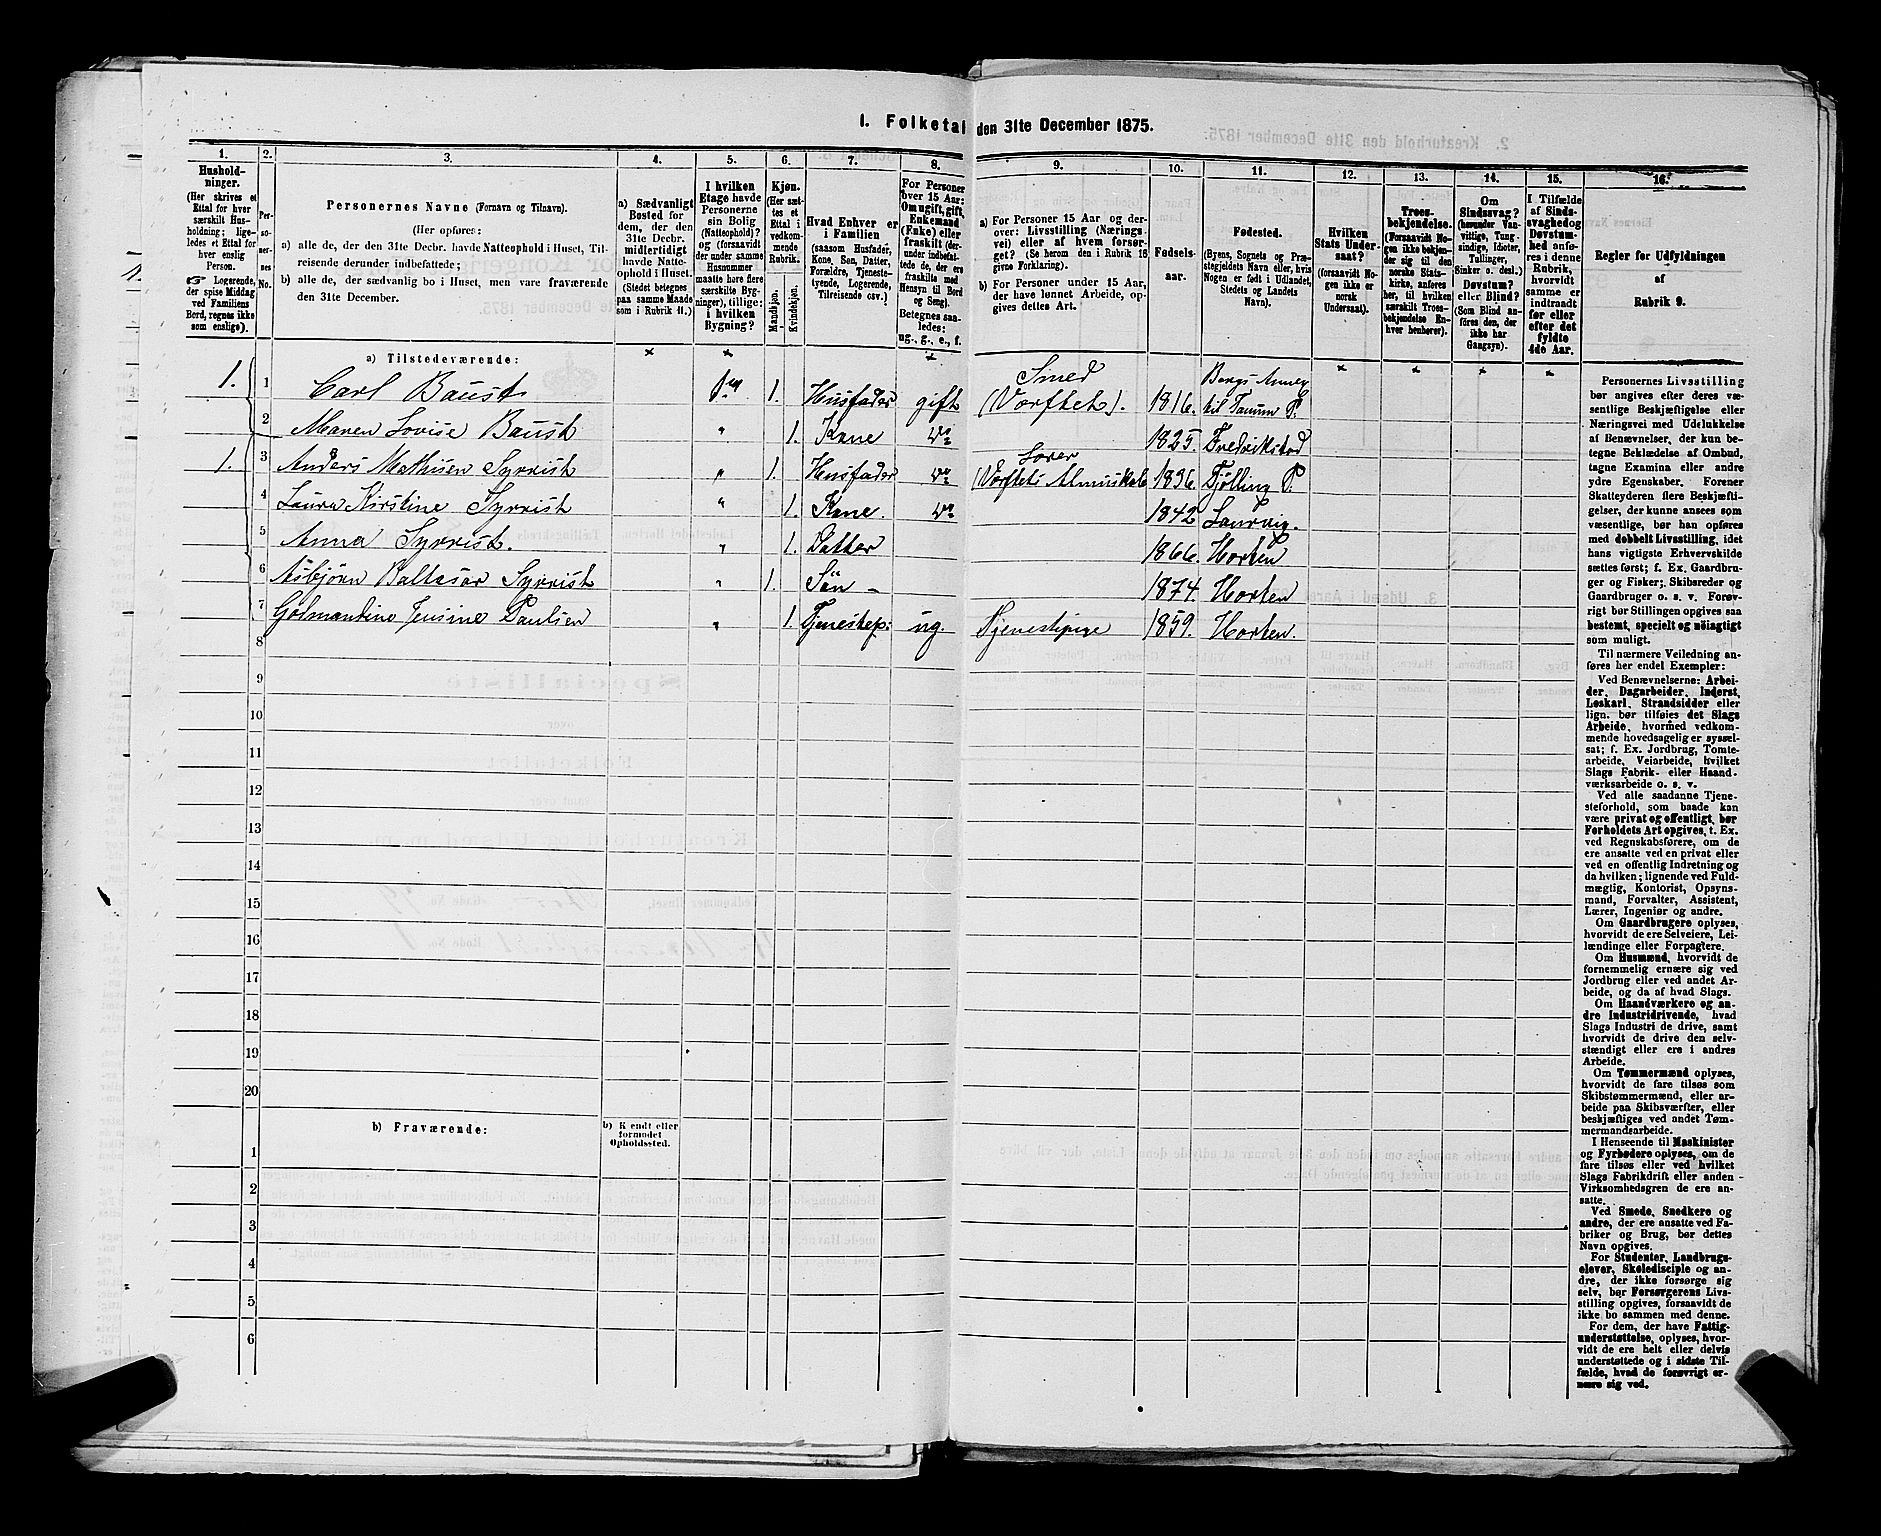 I. Folketal den 31te December 1875.
1. 2. 3. 4. 5. 6. 7. 8. 9. 10. 11. 12. 13. 14. 15. 16.
Hushold-
ninger.
(Her skrives et
Ettal for hver
særskilt Hus-
holdning; lige-
ledes et Ettal for
hver enslig
Person.
☞ Logerende,
der spise Middag
ved Familiens
Bord, regnes ikke
som enslige).
Per-
so-
ner-
nes
No.
Personernes Navne (Fornavn og Tilnavn).
(Her opføres:
a) alle de, der den 31te Decbr. havde Natteophold i Huset, Til-
reisende derunder indbefattede;
b) alle de, der sædvanlig bo i Huset, men vare fraværende
den 31te December.
a) Sædvanligt
Bosted for
dem, der den
31te Decbr.
midlertidigt
havde Natte-
ophold i Huset.
(Stedet betegnes
paa samme Maade
som i Rubrik 11.)
I hvilken
Etage havde
Personerne
sin Bolig
(Natteophold)?
og (forsaavidt
der under samme
Husnummer
maatte høre flere
særskilte Byg-
ninger), tillige:
i hvilken
Bygning?
Kjøn.
(Her sæt-
tes et
Ettal i
vedkom-
mende
Rubrik.
Mandkjøn.
Kvindekjøn.
Hvad Enhver er
i Familien
(saasom Husfader,
Kone, Søn, Datter,
Forældre, Tjeneste-
tyende, Logerende,
Tilreisende osv.)
For Personer
over 15 Aar:
Om ugift, gift,
Enkemand
(Enke) eller
fraskilt (der-
under indbefat-
tede de, der ere
fraskilte med
Hensyn til Bord
og Seng).
Betegnes saa-
ledes:
ug., g., e., f.
a) For Personer 15 Aar og der-
over: Livsstilling (Nærings-
vei) eller af hvem forsør-
get? (Se herom den i Rubrik 16
givne Forklaring).
b) For Personer under 15 Aar,
der have lønnet Arbeide, op-
gives dettes Art.
Fødsels-
aar.
Fødested.
(Byens, Sognets og Præ-
stegjeldets Navn eller, hvis
Nogen er født i Udlandet,
Stedets og Landets
Navn).
Hvilken
Stats Under-
saat?
(forsaavidt No-
gen ikke er
norsk
Undersaat).
Troes-
bekjendelse.
(Forsaavidt No-
gen ikke bekjen-
der sig til den
norske Stats-
kirke, anføres
her, til hvilken
særskilt Troes-
bekjendelse En-
hver henhører).
Om
Sindssvag?
(herunder Van-
vittige, Tung-
sindige, Idioter,
Tullinger,
Sinker o. desl.)
Døvstum?
eller Blind?
(Som Blind an-
føres den, der
ikke har
Gangsyn).
I Tilfælde
af Sinds-
svaghed og
Døvstum-
hed anfø-
res i denne
Rubrik,
hvorvidt
samme er
indtraadt
før eller
efter det
fyldte
4de Aar.
Regler for Udfyldningen
af
Rubrik 9.
a) Tilstedeværende:
1. 1 Carl Baust 1ste 1. Husfader gift Smed (Værftet). 1816. Bergs Annex til Tanum P.
2 Maren Lovise Baust " 1. Kone do 1825 Fredrikstad
1. 3 Anders Mathisen Syrrist " 1. Husfader do Lærer (Værftets Almueskole 1836. Tjølling P.
4 Laura Kirstine Syrrist " 1. Kone. do 1842 Laurvig.
5 Anna Syrrist. " 1. Datter 1866. Horten
6 Asbjørn Baltasar Syrrist " 1. Søn 1874. Horten
7 Gudmandine Jensine Paulsen " 1. Tjenestep: ug. Tjenestepige 1859. Horten.
8
9
10
11
12
13
14
15
16
17
18
19
20
b) Fraværende:
b) Kendt eller
formodet
Opholdssted.
1
2
3
4
5
6
Personernes Livsstilling
bør angives efter deres væ-
sentlige Beskjæftigelse eller
Næringsvei med Udelukkelse
af Benævnelser, der kun be-
tegne Beklædelse af Ombud,
tagne Examina eller andre
ydre Egenskaber. Forener
Skatteyderen flere Beskjæfti-
gelser, der kunne ansees som
væsentlige, bør han opføres
med dobbelt Livsstilling, idet
hans vigtigste Erhvervskilde
sættes først; f. Ex. Gaardbru-
ger og Fisker; Skibsreder og
Gaardbruger o. s. v. Forøv-
rigt bør Stillingen opgives saa
bestemt, specielt og nøiagtigt
som muligt.
Til nærmere Veiledning an-
føres her endel Exempler:
Ved Benævnelserne: Arbei-
der, Dagarbeider, Inderst,
Løskarl, Strandsidder eller
lign. bør tilføies det Slags
Arbeide, hvormed vedkom-
mende hovedsagelig er syssel-
sat; f. Ex. Jordbrug, Tomte-
arbeide, Veiarbeide, hvilket
Slags Fabrik- eller Haand-
værksarbeide o. s. v.
Ved alle saadanne Tjene-
steforhold, som baade kan
være privat og offentligt, bør
Forholdets Art opgives, t. Ex.
ved Regnskabsførere, om de
ere ansatte ved en privat eller
ved en offentlig Indretning og
da hvilken; lignende ved Fuld-
mægtig, Kontorist, Opsyns-
mand, Forvalter, Assistent,
Lærer, Ingeniør og andre.
Om Gaardbrugere oplyses,
hvorvidt de ere Selveiere, Lei-
lændinge eller Forpagtere.
Om Husmænd, hvorvidt de
fornemmelig ernære sig ved
Jordbrug eller ved andet Ar-
beide, og da af hvad Slags.
Om Haandværkere og an-
dre Industridrivende, hvad
Slags Industri de drive, samt
hvorvidt de drive den selv-
stændigt eller ere i andres
Arbeide.
Om Tømmermænd oplyses,
hvorvidt de fare tilsøs som
Skibstømmermænd, eller ar-
beide paa Skibsværfter, eller
beskjæftiges ved andet Tøm-
mermandsarbeide.
I Henseende til Maskinister
og Fyrbødere oplyses, om de
fare tilsøs eller ved hvilket
Slags Fabrikdrift eller anden
Virksomhedsgren de ere an-
satte.
Ved Smede, Snedkere og
andre, der ere ansatte ved Fa-
briker og Brug, bør dettes
Navn opgives.
For Studenter, Landbrugs-
elever, Skoledisciple og an-
dre, der ikke forsørge sig
selv, bør Forsørgerens Livs-
stilling opgives, forsaavidt de
ikke bo sammen med denne.
For dem, der have Fattig-
understøttelse, oplyses, hvor-
vidt de ere helt eller delvis
understøttede og i sidste Til-
fælde, hvad de forøvrigt er-
nære sig ved.